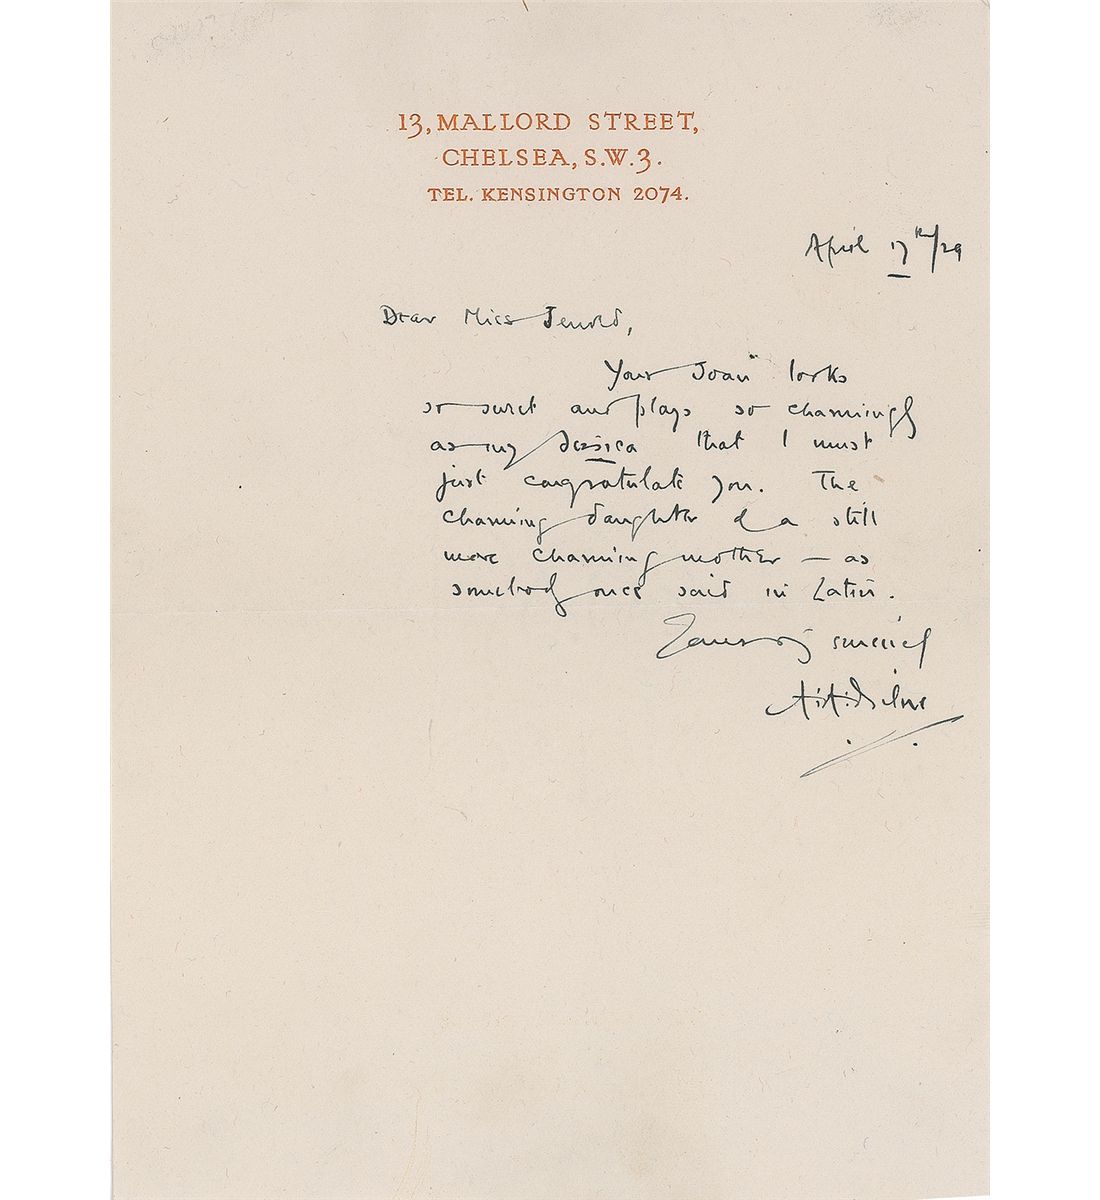 13, MALLORD STREET,
CHELSEA, S.W.3.
TEL. KENSINGTON 2074.
April 17th/29
Dear Miss Jerrold,
Your Joan looks
so sweet and plays so charmingly
as my Jessica that I must
just congratulate you. The
charming daughter of a still
more charming mother — as
somebody once said in Latin.
Yours sincerely
A. A. Milne